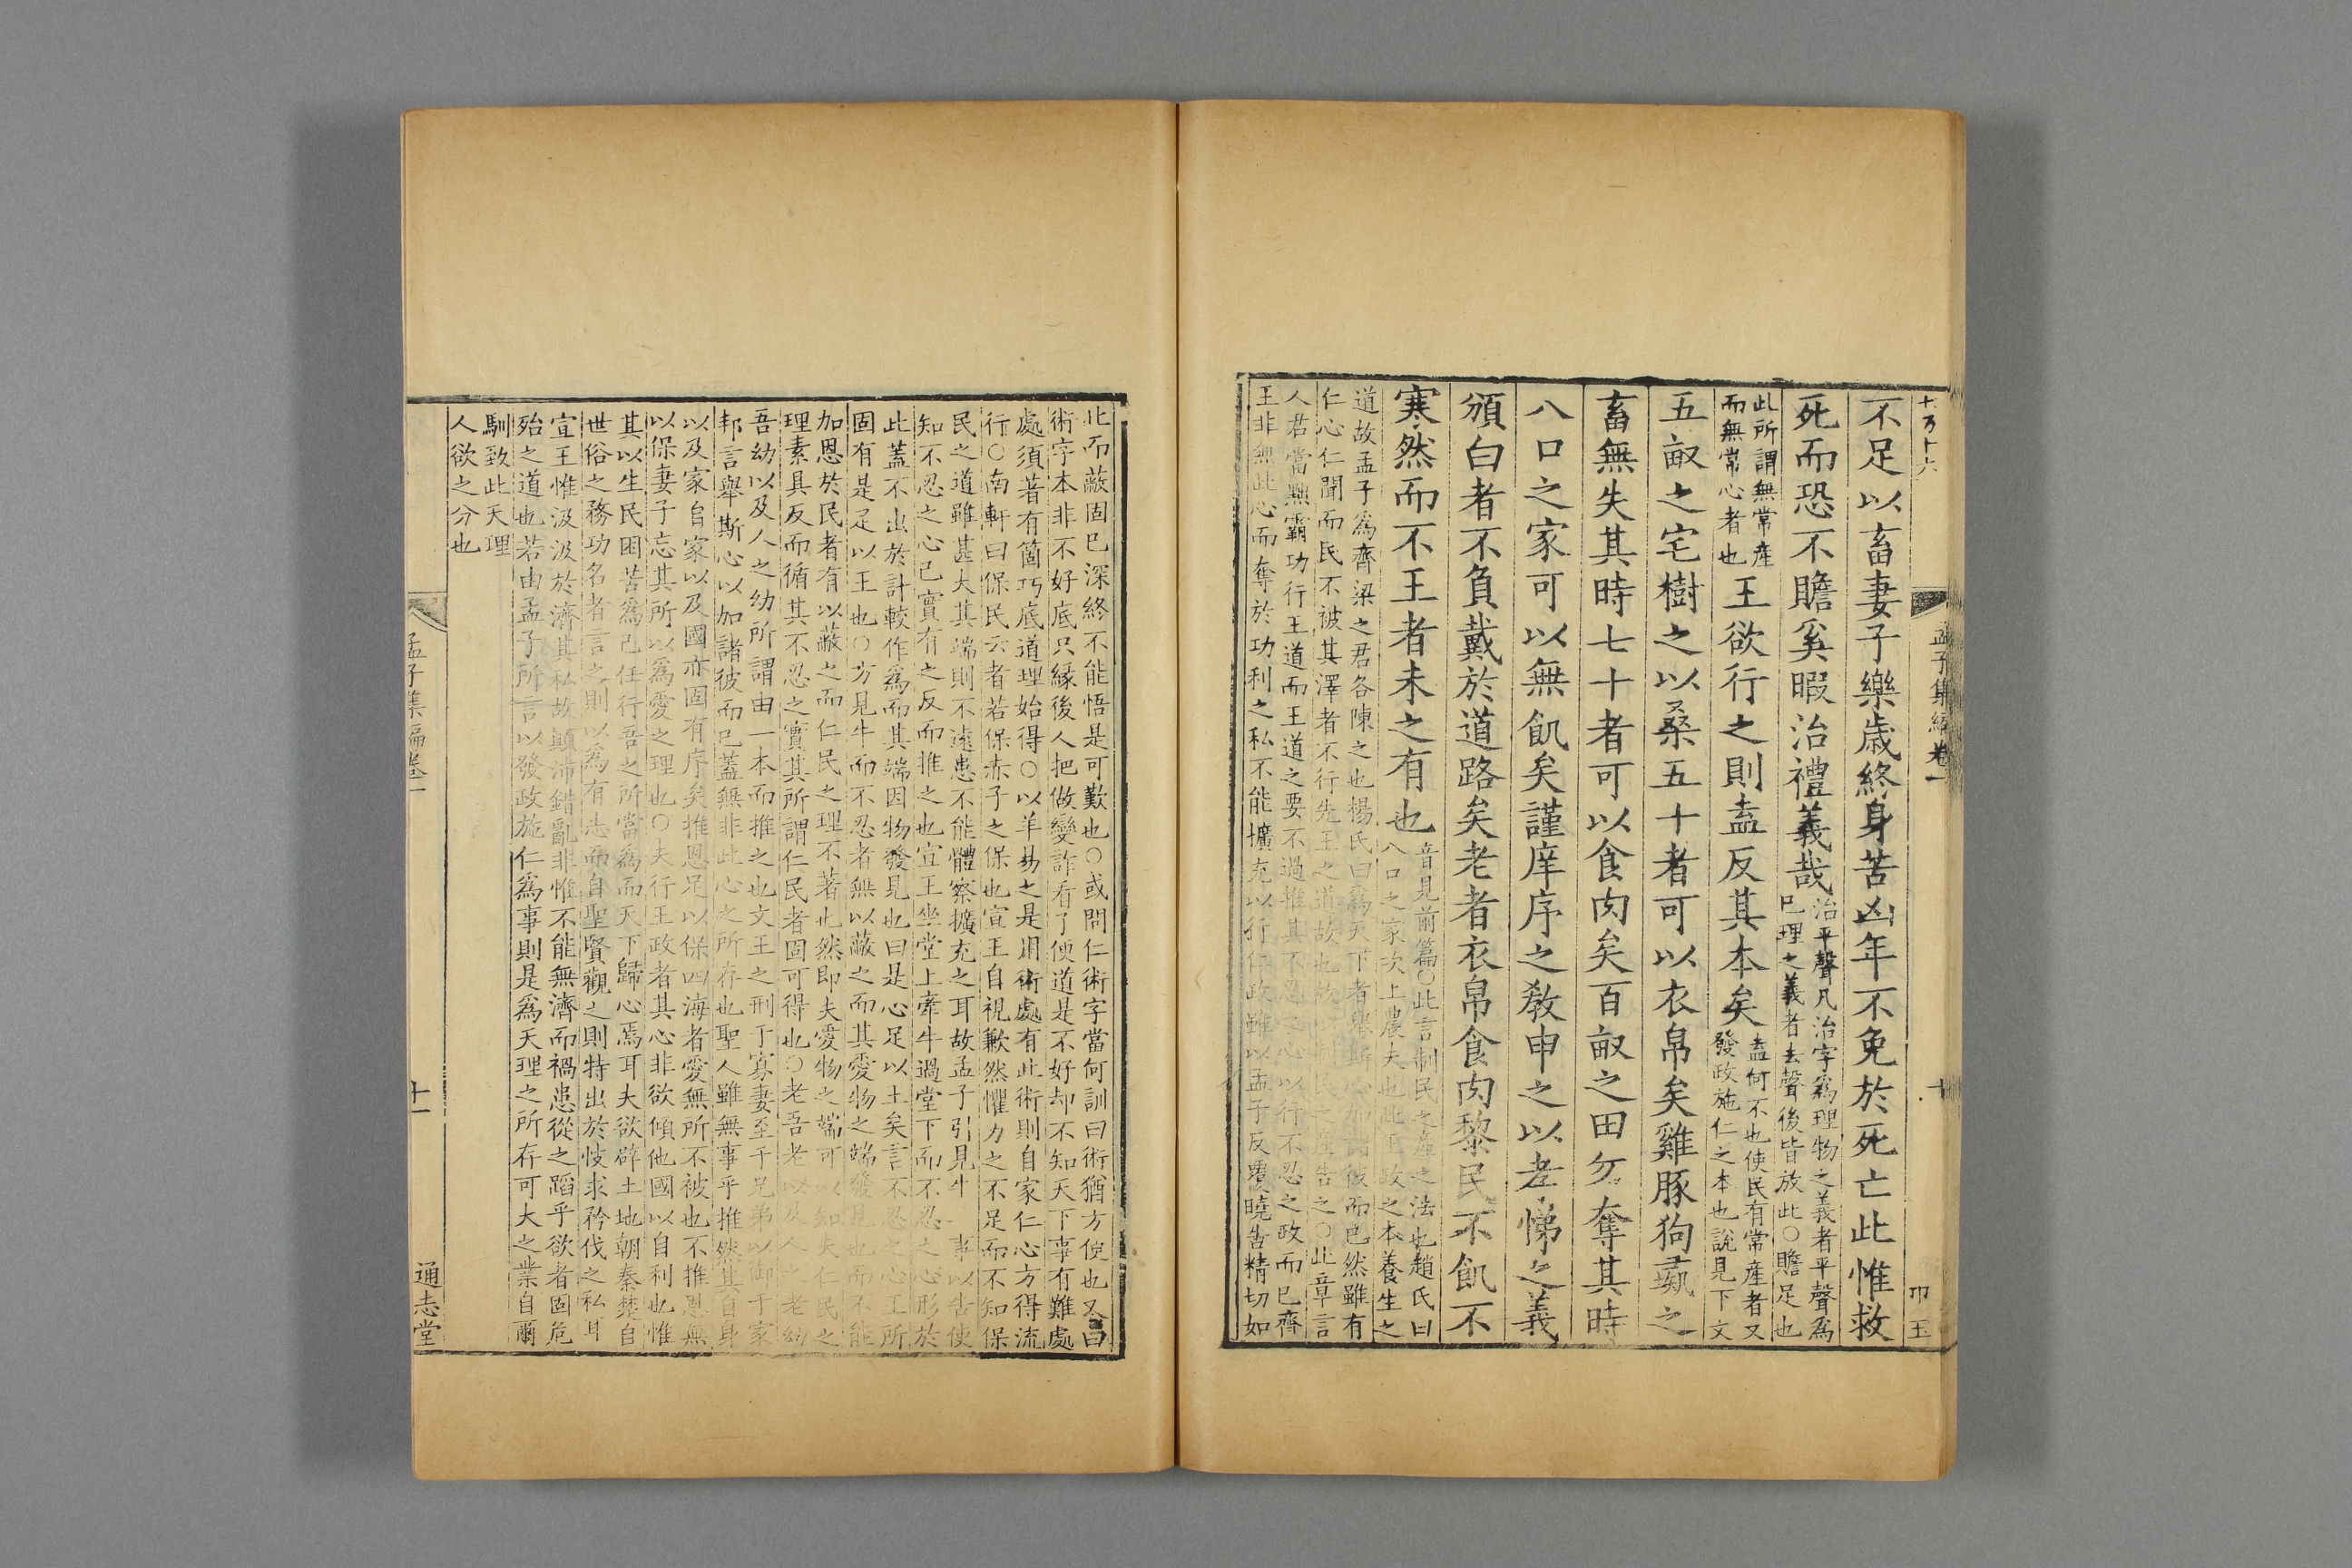 不足以畜妻子樂歲終身苦凶年不免於死亡此惟救
死而恐不贍奚暇治禮義哉治平聲凡治字爲理物之義者平聲爲
已理之義者去聲後皆放此○贍足也
此所謂無常産
而無常心者也王欲行之則盍反其本矣盍何不也使民有常産者又
發政施仁之本也說見下文
五畝之宅樹之以桑五十者可以衣帛矣雞豚狗彘之
畜無失其時七十者可以食肉矣百畝之田勿奪其時
八口之家可以無飢矣謹庠序之教申之以孝悌之義
頒白者不負戴於道路矣老者衣帛食肉黎民不飢不
寒然而不王者未之有也音見前篇○此言制民之産之法也趙氏曰
八口之家次上農夫也此王政之本養生之
道故孟子爲齊梁之君各陳之也楊氏曰爲天下者舉斯心加諸彼而已然雖有
仁心仁聞而民不被其澤者不行先王之道故也故以制民之産告之○此章言
人君當黜霸功行王道而王道之要不過推其不忍之心以行不忍之政而已齊
王非無此心而奪於功利之私不能擴充以行仁政雖以孟子反覆曉告精切如
孟子集編卷一
十
此而蔽固已深終不能悟是可歎也○或問仁術字當何訓曰術猶方便也又曰
術字本非不好底只緣後人把做變詐看了便道是不好却不知天下事有難處
處須著有箇巧底道理始得○以羊易之是用術處有此術則自家仁心方得流
行○南軒曰保民云者若保赤子之保也宣王自視歉然懼力之不足而不知保
民之道雖甚大其端則不遠患不能體察擴充之耳故孟子引見牛一事以告使
知不忍之心已實有之反而推之也宣王坐堂上牽牛過堂下而不忍之心形於
此蓋不出於計較作爲而其端因物發見也曰是心足以王矣言不忍之心王所
固有是足以王也○方見牛而不忍者無以蔽之而其愛物之端發見也而不能
加恩於民者有以蔽之而仁民之理不著也然即夫愛物之端可以知夫仁民之
理素具反而循其不忍之實其所謂仁民者固可得也○老吾老以及人之老幼
吾幼以及人之幼所謂由一本而推之也文王之刑于寡妻至于兄弟以御于家
邦言舉斯心以加諸彼而已蓋無非此心之所存也聖人雖無事乎推然其自身
以及家自家以及國亦固有序矣推恩足以保四海者愛無所不被也不推恩無
以保妻子忘其所以爲愛之理也○夫行王政者其心非欲傾他國以自利也惟
其以生民困苦爲己任行吾之所當爲而天下歸心焉耳夫欲辟土地朝秦楚自
世俗之務功名者言之則以爲有志而自聖賢觀之則特出於忮求矜伐之私耳
宣王惟汲汲於濟其私故顛沛錯亂非惟不能無濟而禍患從之蹈乎欲者固危
殆之道也若由孟子所言以發政施仁爲事則是爲天理之所存可大之業自爾
馴致此天理
人欲之分也
孟子集編卷一
十一
通志堂